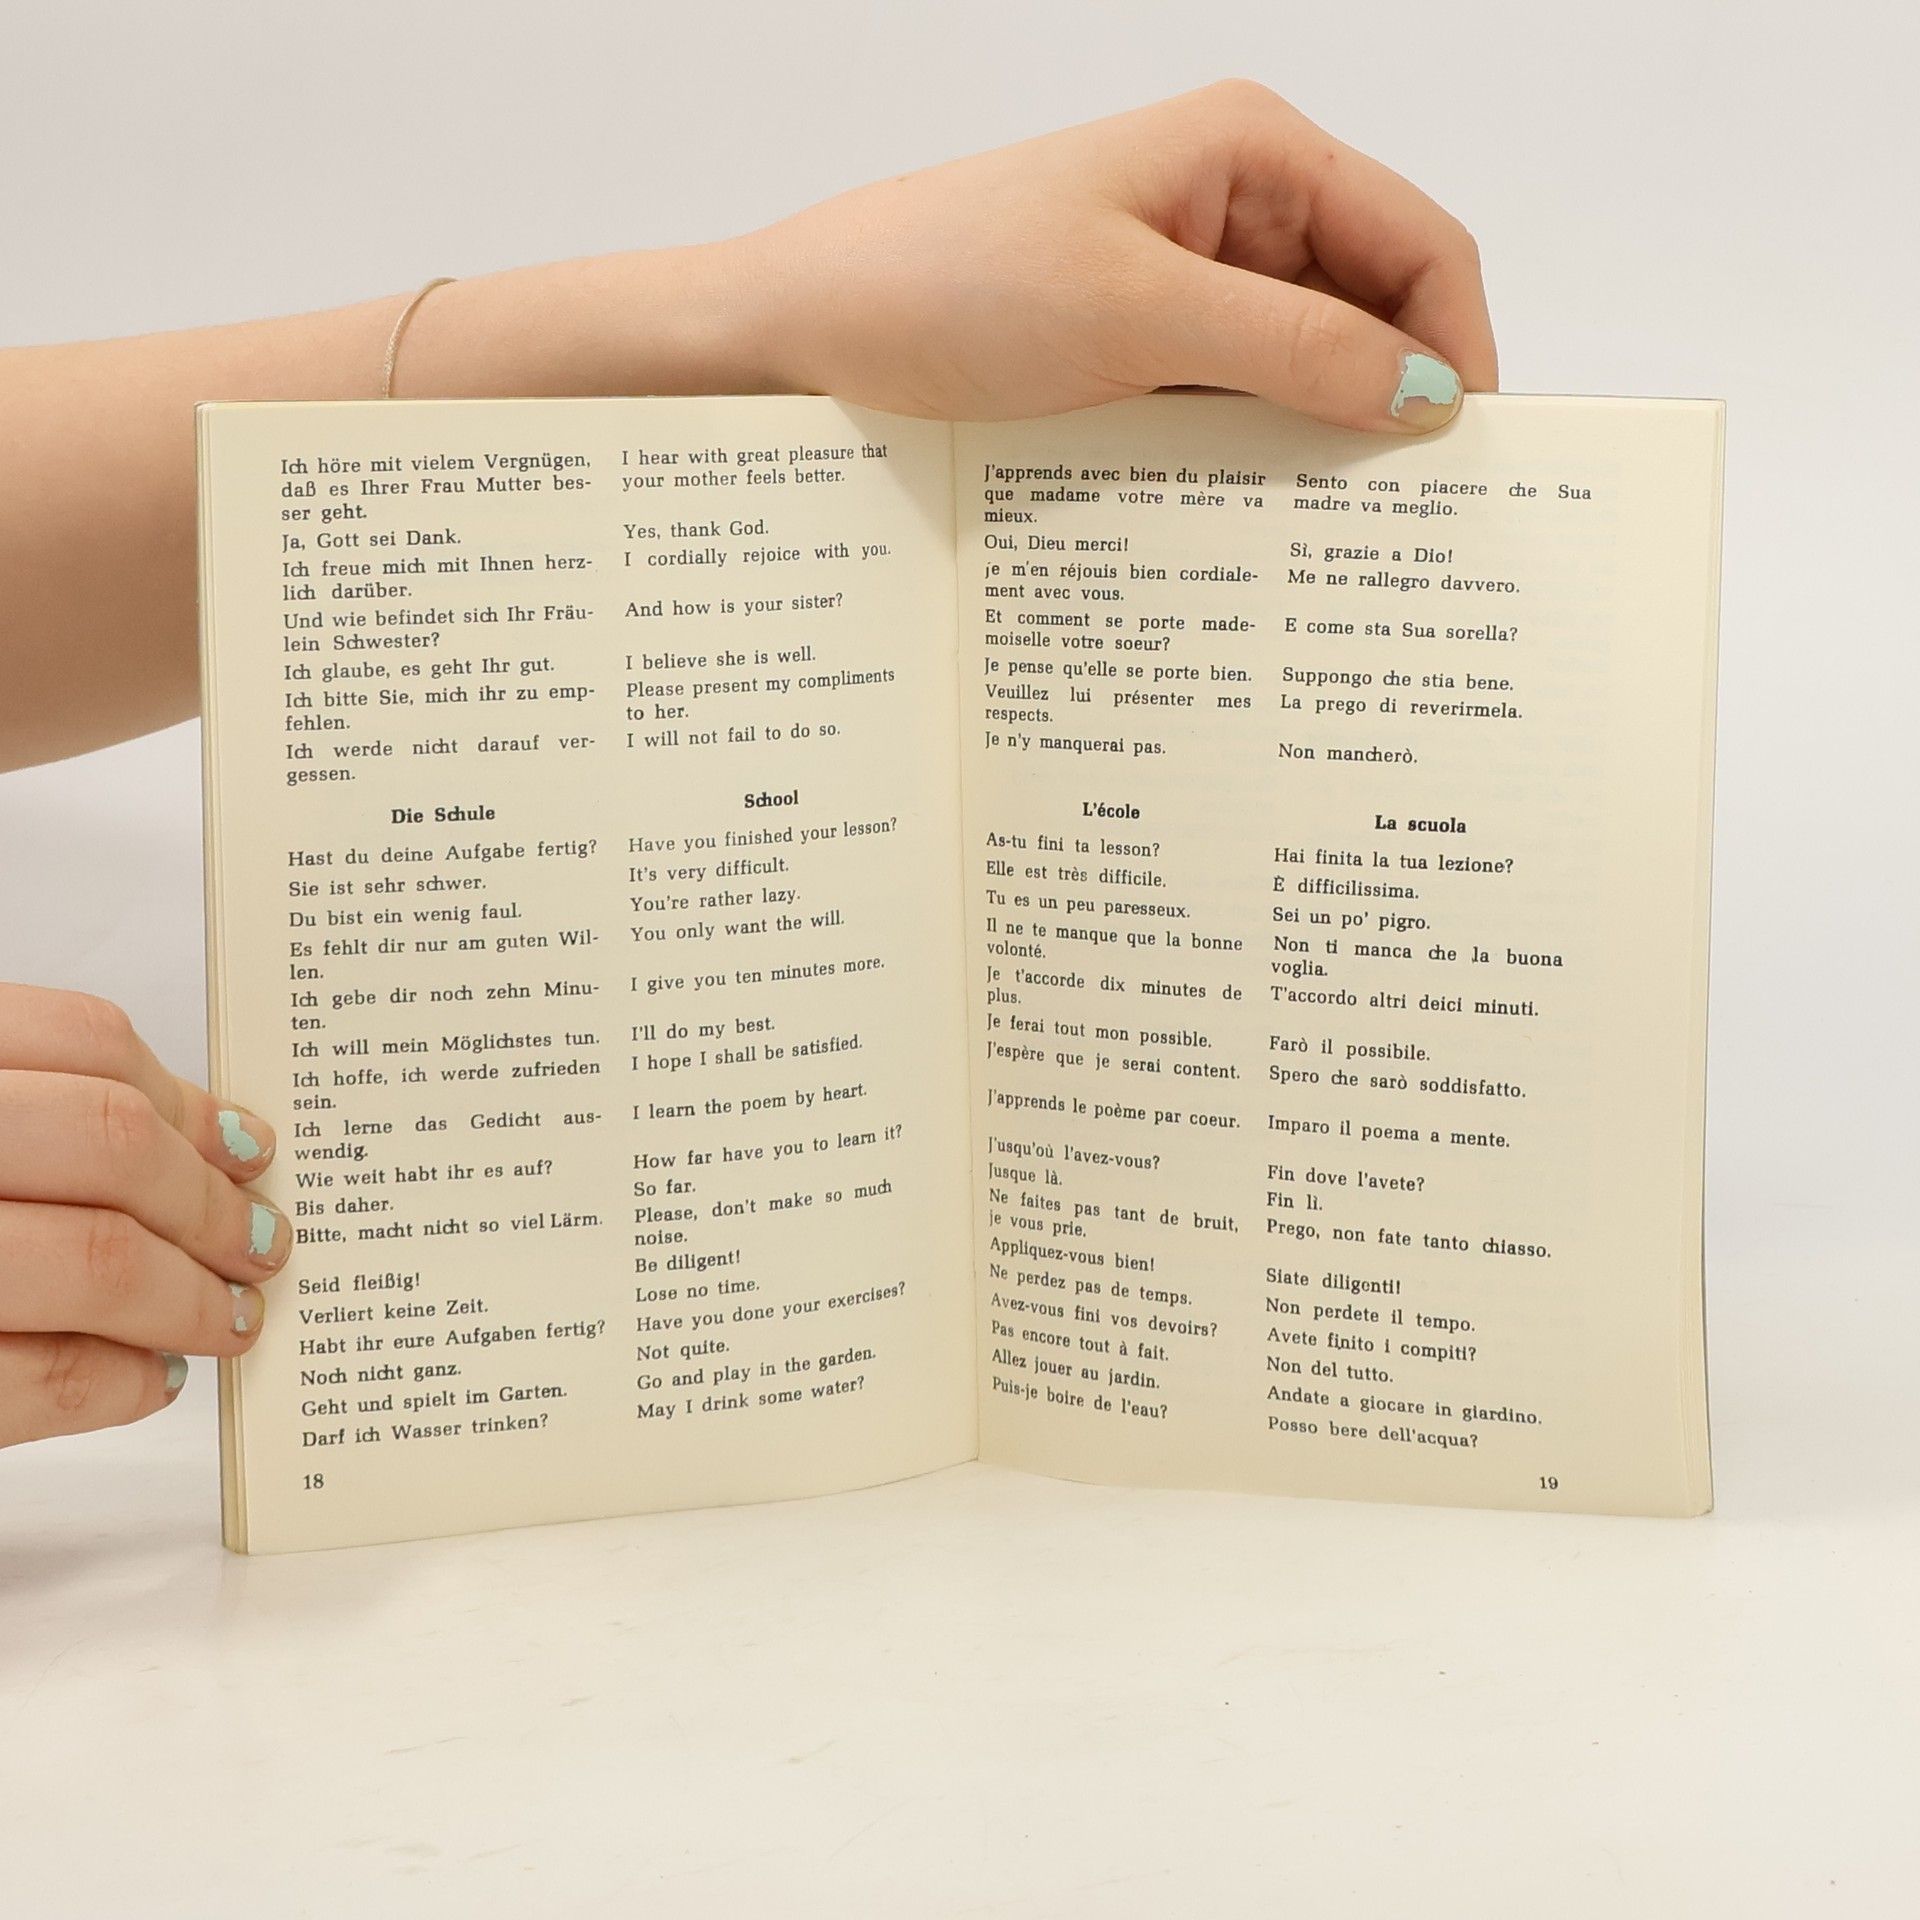 Ich höre mit vielem Vergnügen,
daß es Ihrer Frau Mutter bes-
ser geht.
Ja, Gott sei Dank.
Ich freue mich mit Ihnen herz-
lich darüber.
Und wie befindet sich Ihr Fräu-
lein Schwester?
Ich glaube, es geht Ihr gut.
Ich bitte Sie, mich ihr zu emp-
fehlen.
Ich werde nicht darauf ver-
gessen.
Die Schule
Hast du deine Aufgabe fertig?
Sie ist sehr schwer.
Du bist ein wenig faul.
Es fehlt dir nur am guten Wil-
len.
Ich gebe dir noch zehn Minu-
ten.
Ich will mein Möglichstes tun.
Ich hoffe, ich werde zufrieden
sein.
Ich lerne das Gedicht aus-
wendig.
Wie weit habt ihr es auf?
Bis daher.
Bitte, macht nicht so viel Lärm.
Seid fleißig!
Verliert keine Zeit.
Habt ihr eure Aufgaben fertig?
Noch nicht ganz.
Geht und spielt im Garten.
Darf ich Wasser trinken?
18
I hear with great pleasure that
your mother feels better.
Yes, thank God.
I cordially rejoice with you.
And how is your sister?
I believe she is well.
Please present my compliments
to her.
I will not fail to do so.
School
Have you finished your lesson?
It's very difficult.
You're rather lazy.
You only want the will.
I give you ten minutes more.
I'll do my best.
I hope I shall be satisfied.
I learn the poem by heart.
How far have you to learn it?
So far.
Please, don't make so much
noise.
Be diligent!
Lose no time.
Have you done your exercises?
Not quite.
Go and play in the garden.
May I drink some water?
J'apprends avec bien du plaisir
que madame votre mère va
mieux.
Oui, Dieu merci!
je m'en réjouis bien cordiale-
ment avec vous.
Et comment se porte made-
moiselle votre soeur?
Je pense qu'elle se porte bien.
Veuillez lui présenter mes
respects.
Je n'y manquerai pas.
L'école
As-tu fini ta lesson?
Elle est très difficile.
Tu es un peu paresseux.
Il ne te manque que la bonne
volonté.
Je t'accorde dix minutes de
plus.
Je ferai tout mon possible.
J'espère que je serai content.
J'apprends le poème par coeur.
J'usqu'où l'avez-vous?
Jusque là.
Ne faites pas tant de bruit,
je vous prie.
Appliquez-vous bien!
Ne perdez pas de temps.
Avez-vous fini vos devoirs?
Pas encore tout à fait.
Allez jouer au jardin.
Puis-je boire de l'eau?
Sento con piacere che Sua
madre va meglio.
Sì, grazie a Dio!
Me ne rallegro davvero.
E come sta Sua sorella?
Suppongo che stia bene.
La prego di reverirmela.
Non mancherò.
La scuola
Hai finita la tua lezione?
È difficilissima.
Sei un po' pigro.
Non ti manca che la buona
voglia.
T'accordo altri deici minuti.
Farò il possibile.
Spero che sarò soddisfatto.
Imparo il poema a mente.
Fin dove l'avete?
Fin lì.
Prego, non fate tanto chiasso.
Siate diligenti!
Non perdete il tempo.
Avete finito i compiti?
Non del tutto.
Andate a giocare in giardino.
Posso bere dell'acqua?
19